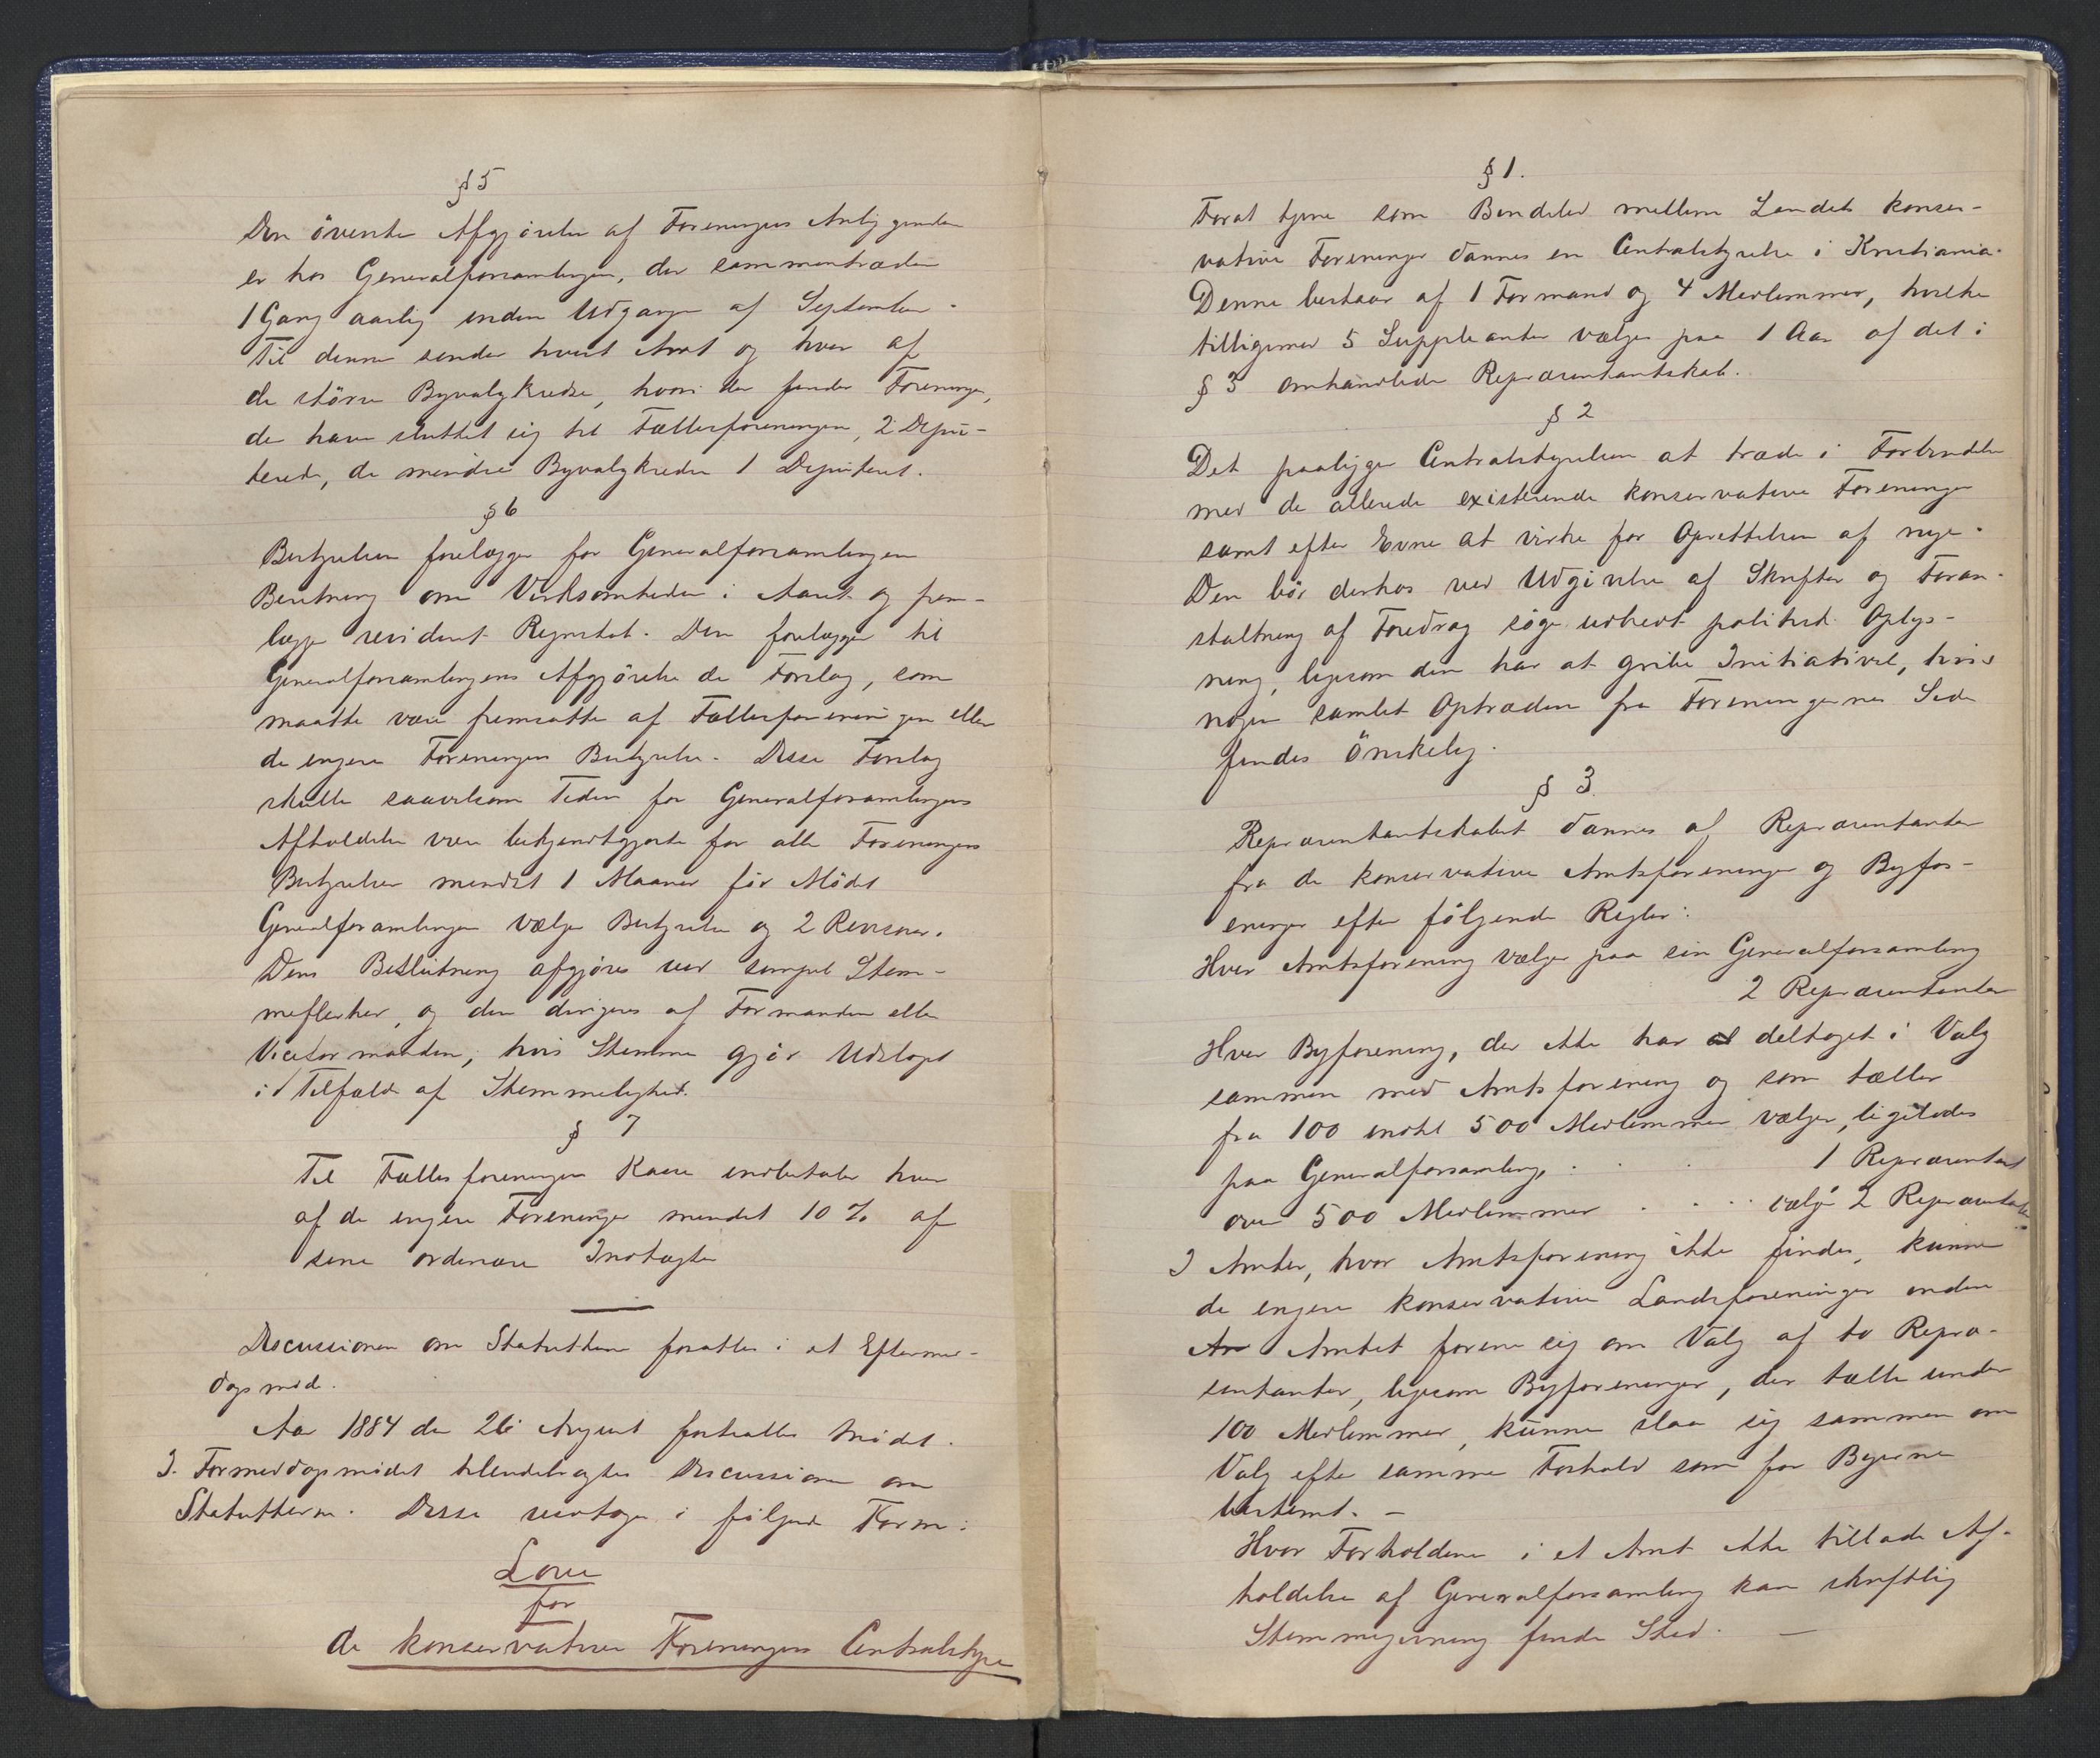 § 5
Den överste Afgjörelse af Foreningens Anliggender
er hos Generalforsamlingen, der sammentræder
1 Gang aarlig inden Udgangen af September.
Til denne sender hvert Amt og hver af
de större Byvalgkredse, hvori der findes Foreninger,
der have sluttet sig til Fællesforeningen, 2 Depu-
terede, de mindre Byvalgkredse 1 Deputeret.
§ 6
Bestyrelsen forelægger for Generalforsamlingen
Beretning om Virksomheden i Aaret og frem-
lægger revideret Regnskab. Den forelægger til
Generalforsamlingens Afgjörelse de Forslag, som
maatte være fremsatte af Fællesforeningen eller
de engere Foreningers Bestyrelse. Disse Forslag
skulle saavelsom Tiden for Generalforsamlingens
Afholdelse være bekjendtgjorte for alle Foreningers
Bestyrelser mindst 1 Maaned för Mödet
Generalforsamlingen vælger Bestyrelse og 2 Revisorer.
Dens Beslutning afgjöres ved simpel Stem-
meflerhed, og den dirigeres af Formanden eller
Viceformanden, hvis Stemme gjör Udslaget
i Tilfælde af Stemmelighed.
§ 7
Til Fællesforeningens Kasse indbetaler hver
af de engere Foreninger mindst 10 % af
sine ordinære Indtægter
Discussionen om Statutterne forsattes i et Eftermid-
dagsmöde.
Aar 1884 den 26 August fortsattes Mödet.
I Formiddagsmödet tilendebragtes Discussionen om
Statutterne. Disse vedtoges i följende Form:
Love
for
de konservative Foreningers Centralstyre
§ 1.
Forat tjene som Bindeled mellem Landets konser-
vative Foreninger dannes en Centralstyrelse i Kristiania.
Denne bestaar af 1 Formand og 4 Medlemmer, hvilke
tilligemed 5 Suppleanter vælges paa 1 Aar af det i
§ 3 omhandlede Repræsentantskab.
§ 2
Det paaligger Centralstyrelsen at træde i Forbindelse
med de allerede existerende konservative Foreninger
samt efter Evne at virke for Oprettelsen af nye.
Den bör derhos ved Udgivelse af Skrifter og Foran-
staltning af Foredrag söge udbredt politisk Oplys-
ning, ligesom den har at gribe Initiativet, hvis
nogen samlet Optræden fra Foreningernes Side
findes önskelig.
§ 3
Repræsentantskabet dannes af Repræsentanter
fra de konservative Amtsforeninger og Byfor-
eninger efter fölgende Regler:
Hver Amtsforening vælger paa sin Generalforsamling
2 Repræsentanter
Hver Byforening, der ikke har deltaget i Valg
sammen med Amtsforening og som tæller
fra 100 indtil 500 Medlemmer vælger, ligeledes
paa Generalforsamling, . . . 1 Repræsentant
over 500 Medlemmer . . . vælge 2 Repræsentanter
I Amter, hvor Amtsforening ikke findes, kunne
de engere konservative Landsforeninger inden
Amtet forene sig om Valg af to Repræ-
sentanter, ligesom Byforeninger, der tælle under
100 Medlemmer, kunne slaa sig sammen om
Valg efter samme Forhold som for Byerne
bestemt. —
Hvor Forholdene i et Amt ikke tillade Af-
holdelse af Generalforsamling kan skriftlig
Stemmegivning finde Sted. —